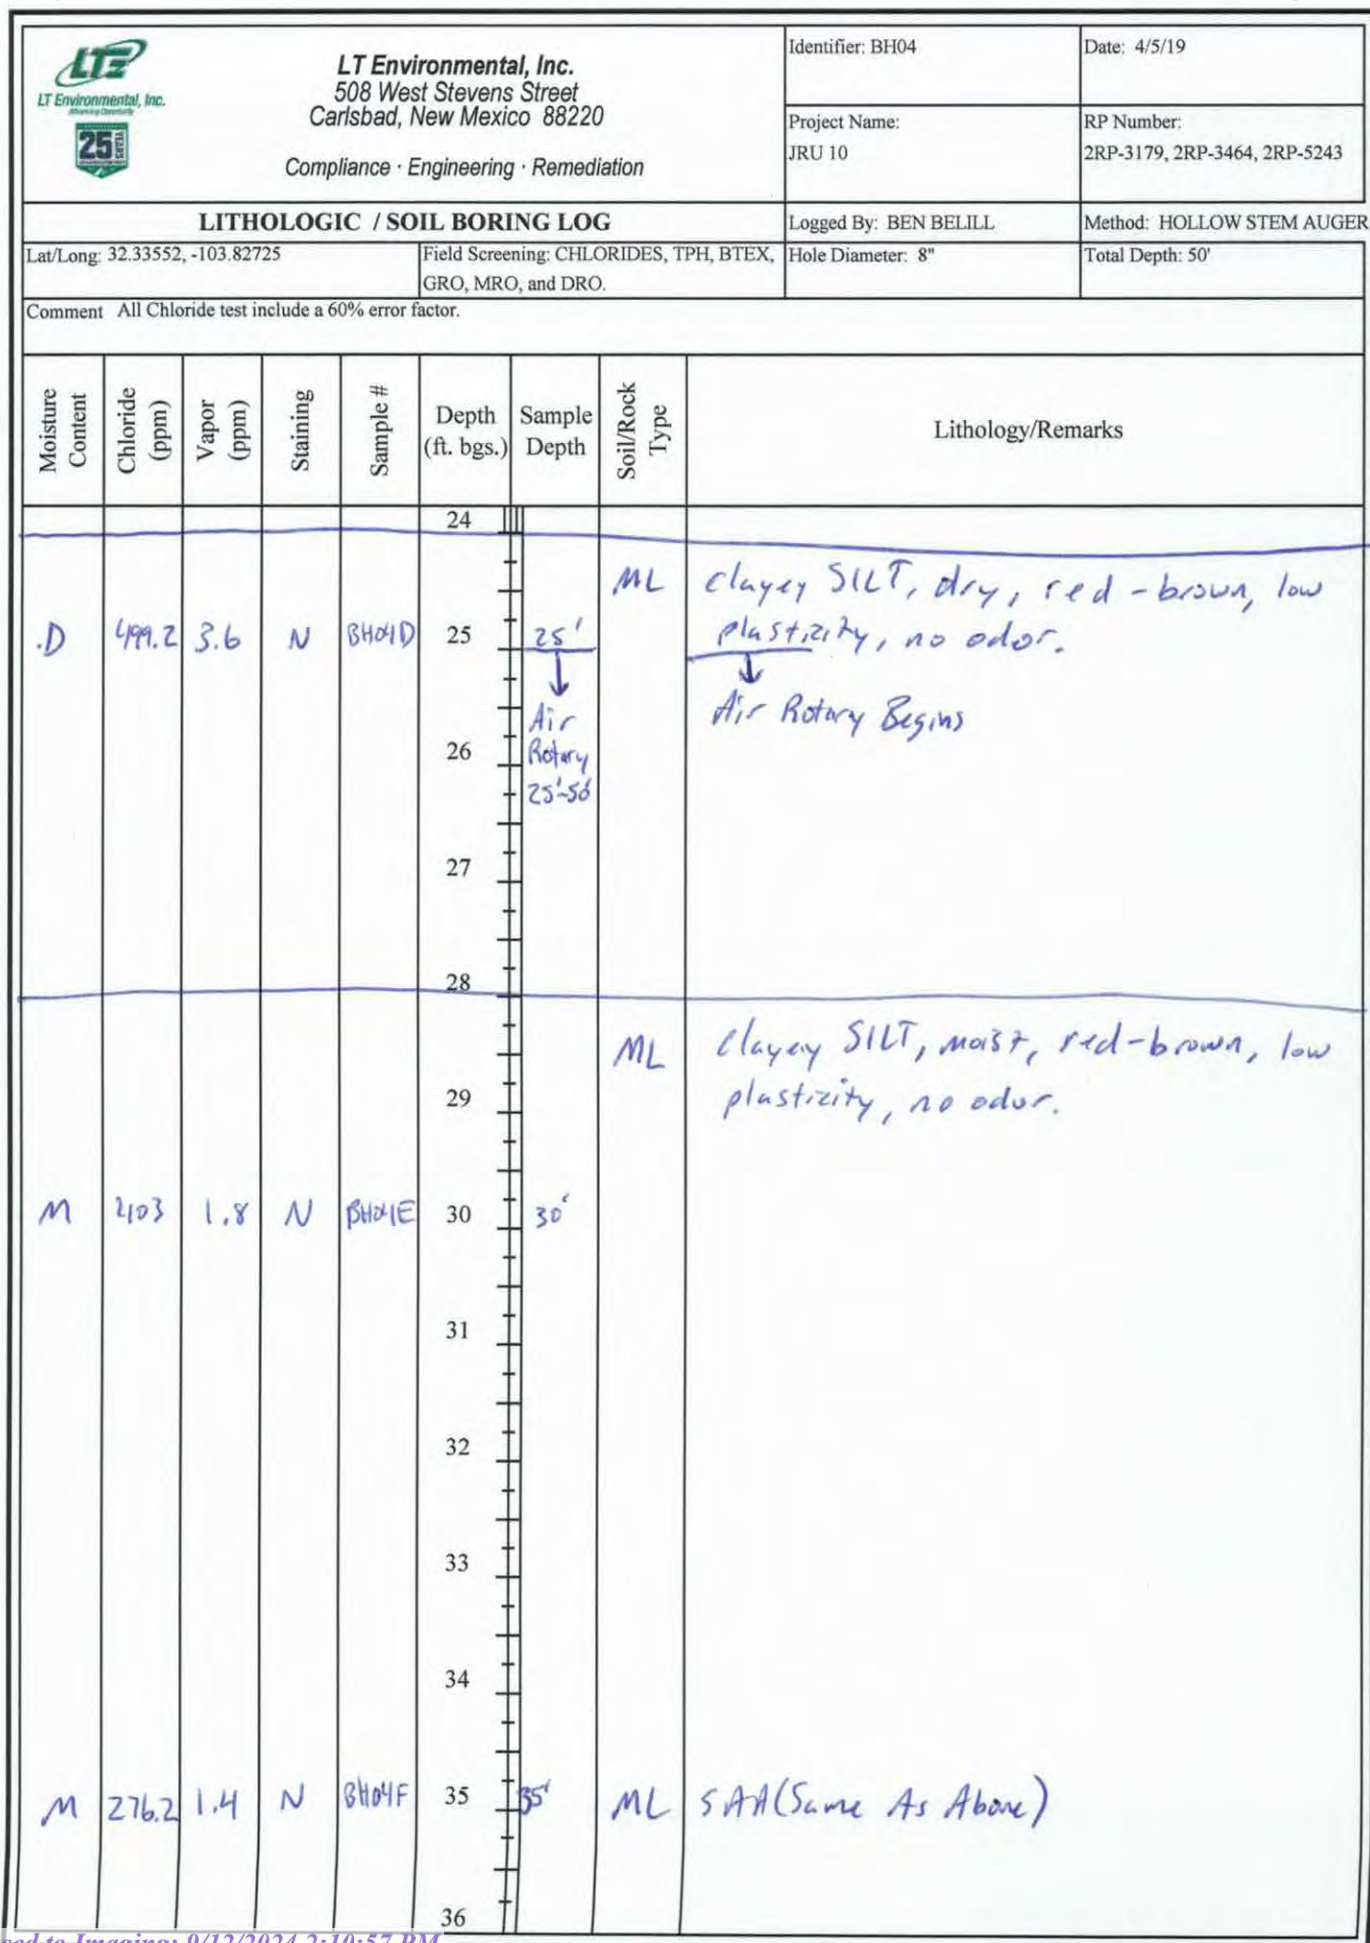 LTE
LT Environmental, Inc.
Advancing Opportunity
25 YEARS
LT Environmental, Inc.
508 West Stevens Street
Carlsbad, New Mexico 88220
Compliance · Engineering · Remediation
Identifier: BH04
Date: 4/5/19
Project Name:
JRU 10
RP Number:
2RP-3179, 2RP-3464, 2RP-5243
LITHOLOGIC / SOIL BORING LOG
Logged By: BEN BELILL
Method: HOLLOW STEM AUGER
Lat/Long: 32.33552, -103.82725
Field Screening: CHLORIDES, TPH, BTEX,
GRO, MRO, and DRO.
Hole Diameter: 8"
Total Depth: 50'
Comment All Chloride test include a 60% error factor.
Moisture
Content
Chloride
(ppm)
Vapor
(ppm)
Staining
Sample #
Depth
(ft. bgs.)
Sample
Depth
Soil/Rock
Type
Lithology/Remarks
24
ML clayey SILT, dry, red-brown, low
D 499.2 3.6 N BH04D 25 25' plasticity, no odor.
Air Air Rotary Begins
26 Rotary
25'-50'
27
28
ML clayey SILT, moist, red-brown, low
29 plasticity, no odor.
M 403 1.8 N BH04E 30 30'
31
32
33
34
M 276.2 1.4 N BH04F 35 35' ML SAA (Same As Above)
36
sed to Imaging: 9/12/2024 2:10:57 PM